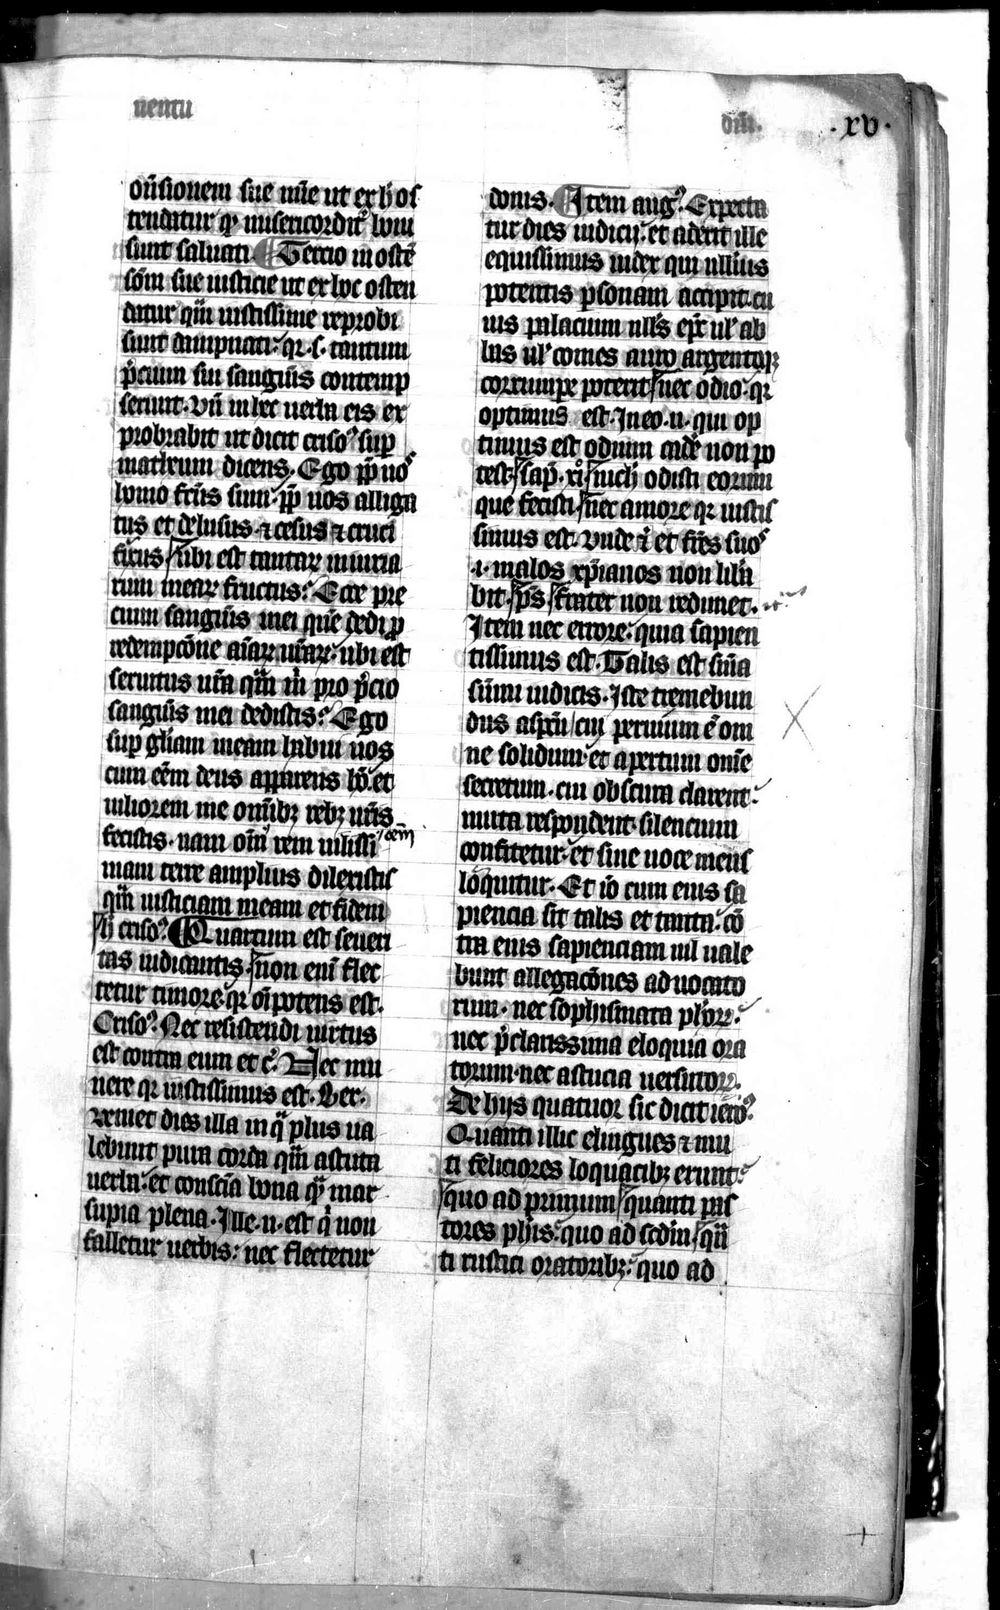 uentu
dñi.
.xv.
oñsionem sue mīe ut ex h̄ os
tendatur qͣ misericordit̾ homi
sunt saluati. Tercio in osten̄
sōm sue iusticie ut ex hoc osten
datur qm̄ iustissime reprobi
sunt dampnati: qꝛ .s. tantum
p̄cium sui sanguīs contemp
serunt. Vn̄ in hec uerba eis ex
probrabit ut dicit criso᷒ suꝑ
matheum dicens. Ego ꝓp̄ uos
homo fc̄us sum: ꝓp̄ uos alliga
tus et delusus ⁊ cesus ⁊ cruci
fixus / ubi est tantaꝝ iniuria
rum meaꝝ fructus? Ecce pre
cium sanguīs mei quē dedi ꝓ
redempcōne aīaꝝ ur̄aꝝ: ubi est
seruitus ur̄a qm̄ m̄ pro p̄cio
sanguīs mei dedistis? Ego
suꝑ gl̄iam meam habui uos
cum eēm deus apparens hō. et
uiliorem me omībꝫ rebꝫ ur̄is
fecistis. nam oīm̄ rem uilissi
mam terre amplius dilexistis
qm̄ iusticiam meam et fidem
h̄ criso᷒ Quartum est seueri
tas iudicantis. / non enī flec
tetur timore: qꝛ oīpotens est.
Criso᷒. Nec resistendi uirtus
est contra eum et c̾. Nec mu
nere qꝛ iustissimus est. Ber.
Veniet dies illa in qͣ plus ua
lebunt pura corda qm̄ astuta
uerba: et conscīa bona qͣ mar
supia plena. Ille .n. est qͥ non
falletur uerbis: nec flectetur
donis. Item aug᷒. Expecta
tur dies iudicij: et aderit ille
equissimus iudex qui nullius
potentis ꝑsonam accipit. cu
ius palacium null̄s ep̄c ul̾ ab
bas ul̾ comes auro argentoqꝫ
corrumpe poterit / nec odio. qꝛ
optimus est. In eo .n. qui op
timus est odium cade non po
test. / sap̄. xi᷒. / nichil odisti eorum
que fecisti. / nec amore qꝛ iustis
simus est. vnde ⁊ et fr̄es suos
.i. malos xp̄ianos non lib̄a
bit. / ps̄ / frater non redimet.
Item nec errore: quia sapien
tissimus est. Talis est sm̄a
sūmi iudicis. Iste tremebun
dus asp̄tu / cuj peruium ē om
ne solidum et apertum omē
secretum. cui obscura clarent.
muta respondent. silencium
confitetur: et sine uoce mens
loquitur. Et iō cum eius sa
piencia sit talis et tanta: cō
tra eius sapienciam nil uale
bunt allegacōnes aduocato
rum. nec sophismata phōꝝ.
nec p̄clarissima eloquia ora
torum. nec astucia uersutoꝝ.
De hijs quatuor sic dicit iero᷒.
Quanti illic elingues ⁊ mu
ti feliciores loquacibꝫ erunt.
quo ad primum / quanti pas
tores ph̄is: quo ad scd̄m / qn̄
ti rustici oratoribꝫ: quo ad